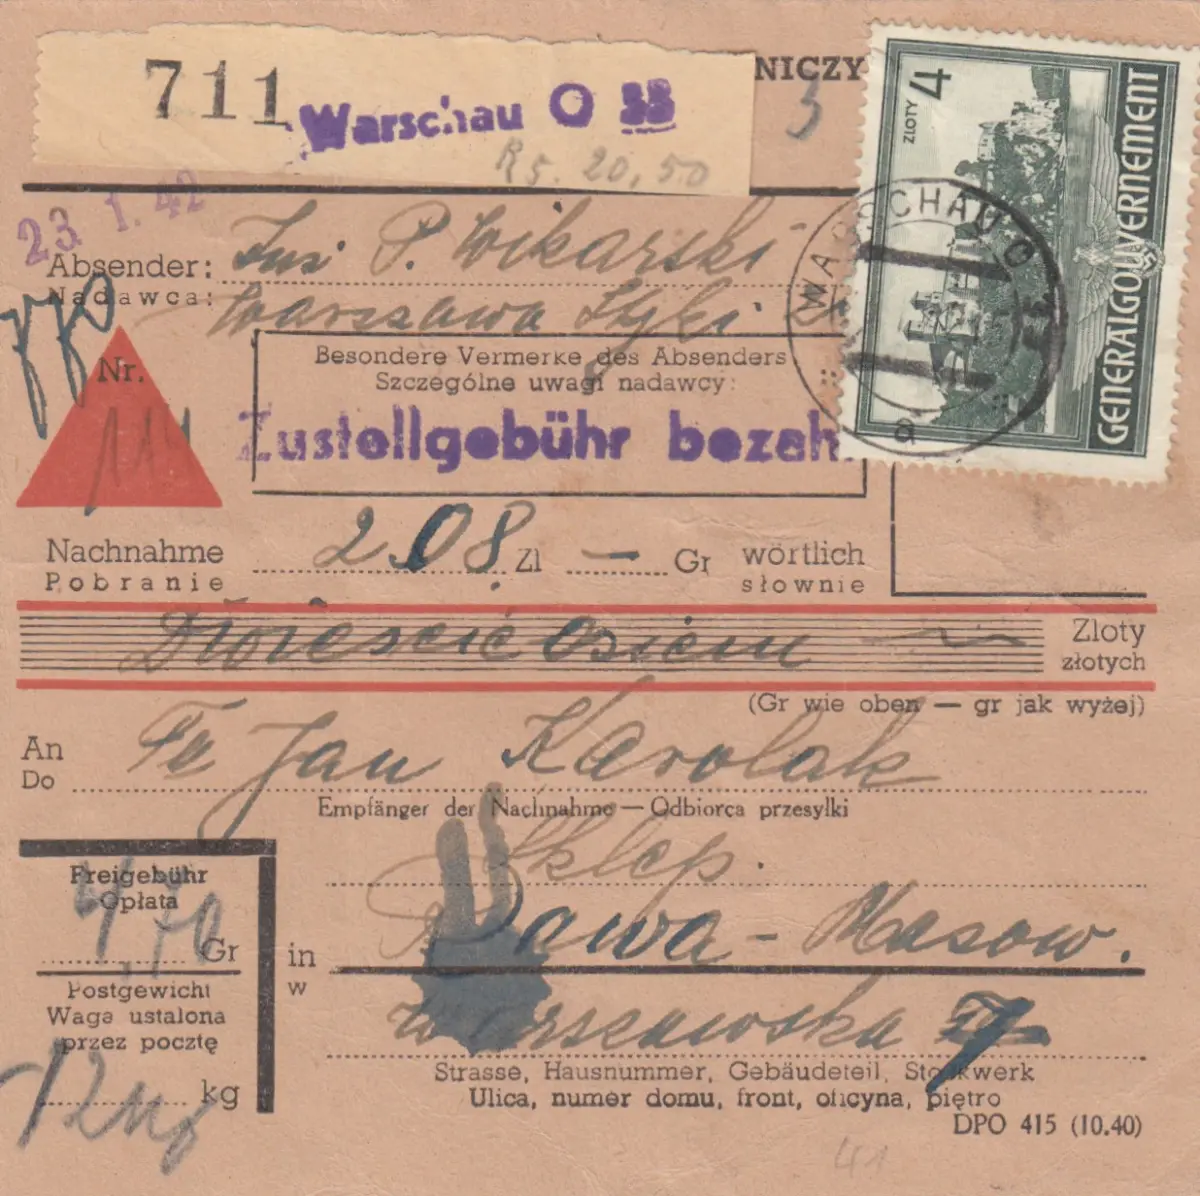 711 Warschau O
NICZY
5
R5. 20,50
4
ZLOTY
GENERALGOUVERNEMENT
WARSCHAU O
a
23. 1. 42
Absender: P. Wikarski
Nadawca: Warszawa
Nr.
114
Besondere Vermerke des Absenders
Szczególne uwagi nadawcy:
Zustellgebühr bezah
Nachnahme 208 Zl — Gr wörtlich
Pobranie słownie
Dwieście osiem Zloty
złotych
(Gr wie oben — gr jak wyżej)
An Fe Jan Karolak
Do
Empfänger der Nachnahme — Odbiorca przesyłki
Sklep.
Freigebühr
Opłata
4,70 Gr
in Rawa - Masow.
w
Postgewicht
Waga ustalona
przez pocztę
12 kg
Warszawska 7
Strasse, Hausnummer, Gebäudeteil, Stockwerk
Ulica, numer domu, front, oficyna, piętro
DPO 415 (10.40)
41